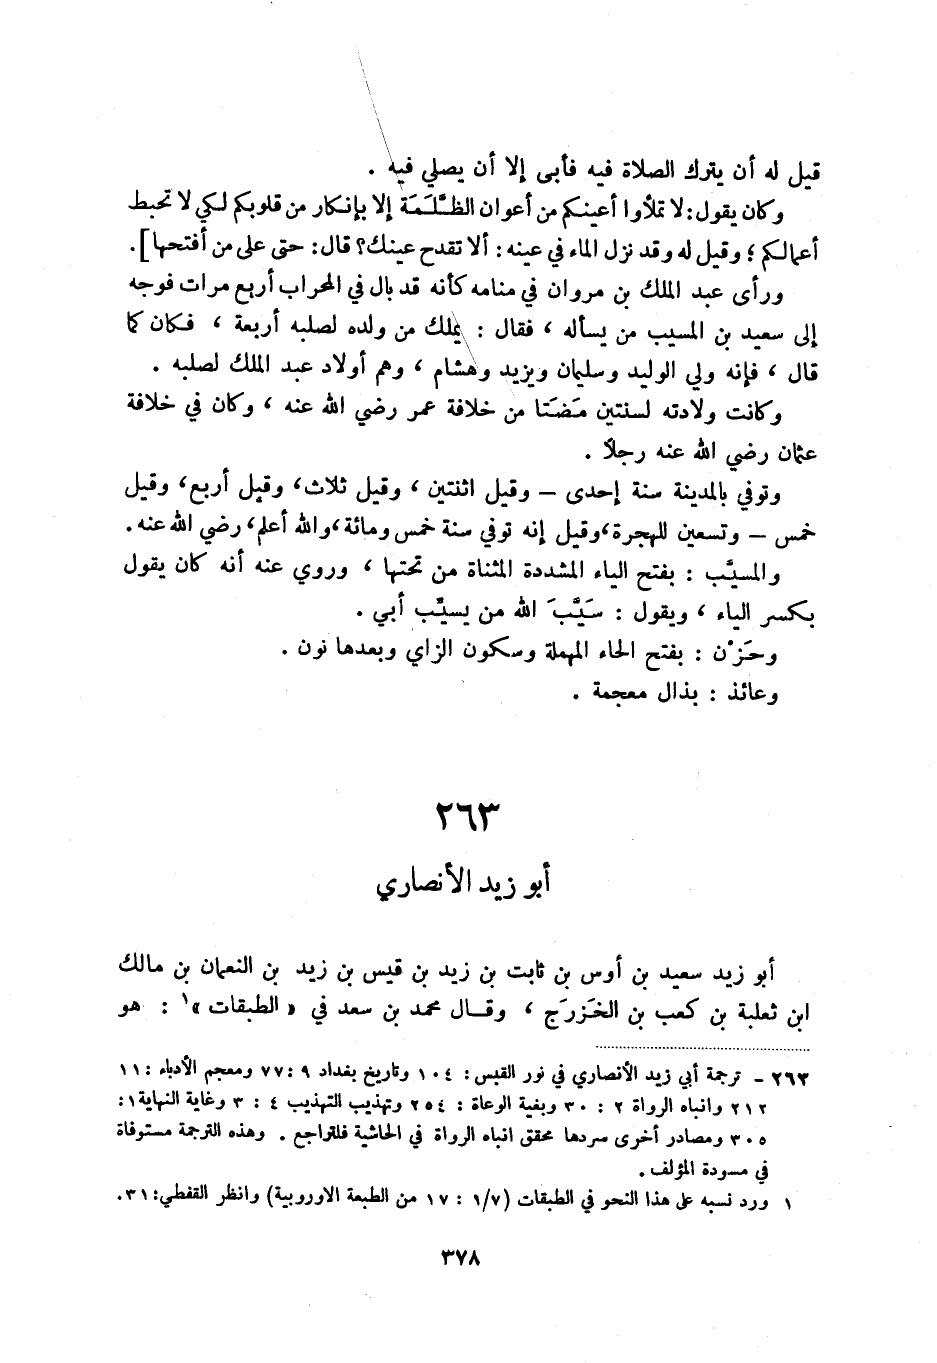 قيل له أن يترك الصلاة فيه فأبى إلا أن يصلي فيه .
وكان يقول: لا تملأوا أعينكم من أعوان الظَّلَمَة إلا بإنكار من قلوبكم لكي لا تحبط
أعمالكم ؛ وقيل له وقد نزل الماء في عينه : ألا تقدح عينك؟ قال: حتى على من أفتحها] .
ورأى عبد الملك بن مروان في منامه كأنه قد بال في المحراب أربع مرات فوجه
إلى سعيد بن المسيب من يسأله ، فقال : يملك من ولده لصلبه أربعة ، فكان كما
قال ، فإنه ولي الوليد وسليمان ويزيد وهشام ، وهم أولاد عبد الملك لصلبه .
وكانت ولادته لسنتين مَضَتا من خلافة عمر رضي الله عنه ، وكان في خلافة
عثمان رضي الله عنه رجلاً .
وتوفي بالمدينة سنة إحدى – وقيل اثنتين ، وقيل ثلاث، وقيل أربع، وقيل
خمس – وتسعين للهجرة، وقيل إنه توفي سنة خمس ومائة، والله أعلم، رضي الله عنه .
والمسيَّب : بفتح الياء المشددة المثناة من تحتها ، وروي عنه أنه كان يقول
بكسر الياء ، ويقول : سَيَّبَ الله من يسيِّب أبي .
وحَزْن : بفتح الحاء المهملة وسكون الزاي وبعدها نون .
وعائذ : بذال معجمة .
٢٦٣
أبو زيد الأنصاري
أبو زيد سعيد بن أوس بن ثابت بن زيد بن قيس بن زيد بن النعمان بن مالك
ابن ثعلبة بن كعب بن الخَزرَج ، وقال محمد بن سعد في « الطبقات »١ : هو
٢٦٣ – ترجمة أبي زيد الأنصاري في نور القبس : ١٠٤ وتاريخ بغداد ٩ : ٧٧ ومعجم الأدباء ١١ :
٢١٢ وانباه الرواة ٢ : ٣٠ وبغية الوعاة : ٢٥٤ وتهذيب التهذيب ٤ : ٣ وغاية النهاية ١ :
٣٠٥ ومصادر أخرى سردها محقق انباه الرواة في الحاشية فلتراجع . وهذه الترجمة مستوفاة
في مسودة المؤلف .
١ ورد نسبه على هذا النحو في الطبقات (١/٧ : ١٧ من الطبعة الاوروبية) وانظر القفطي: ٣١ .
٣٧٨